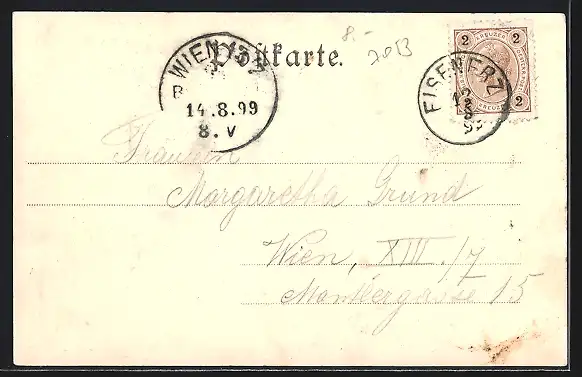 Postkarte.
8.-
2013
WIEN
14.8.99
8. V
2 KREUZER 2
2
EISENERZ
12
8
99
Fräulein
Margaretha Grund
Wien, XIII./7
15